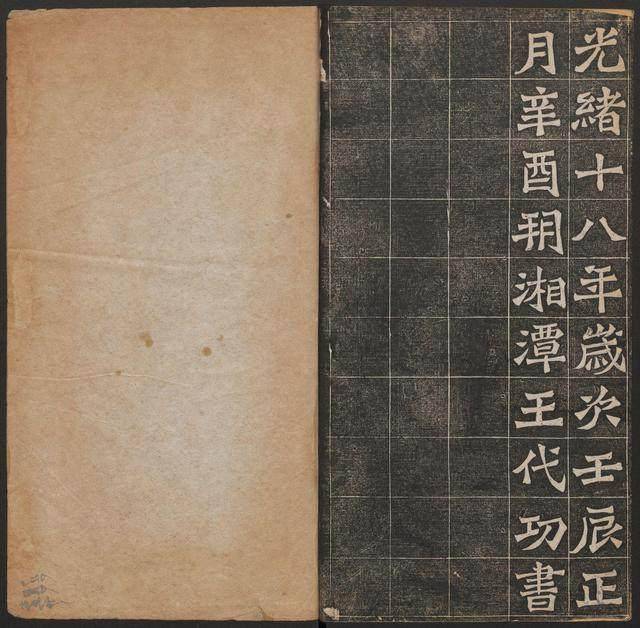 光緒十八年歲次壬辰正
月辛酉朔湘潭王代功書